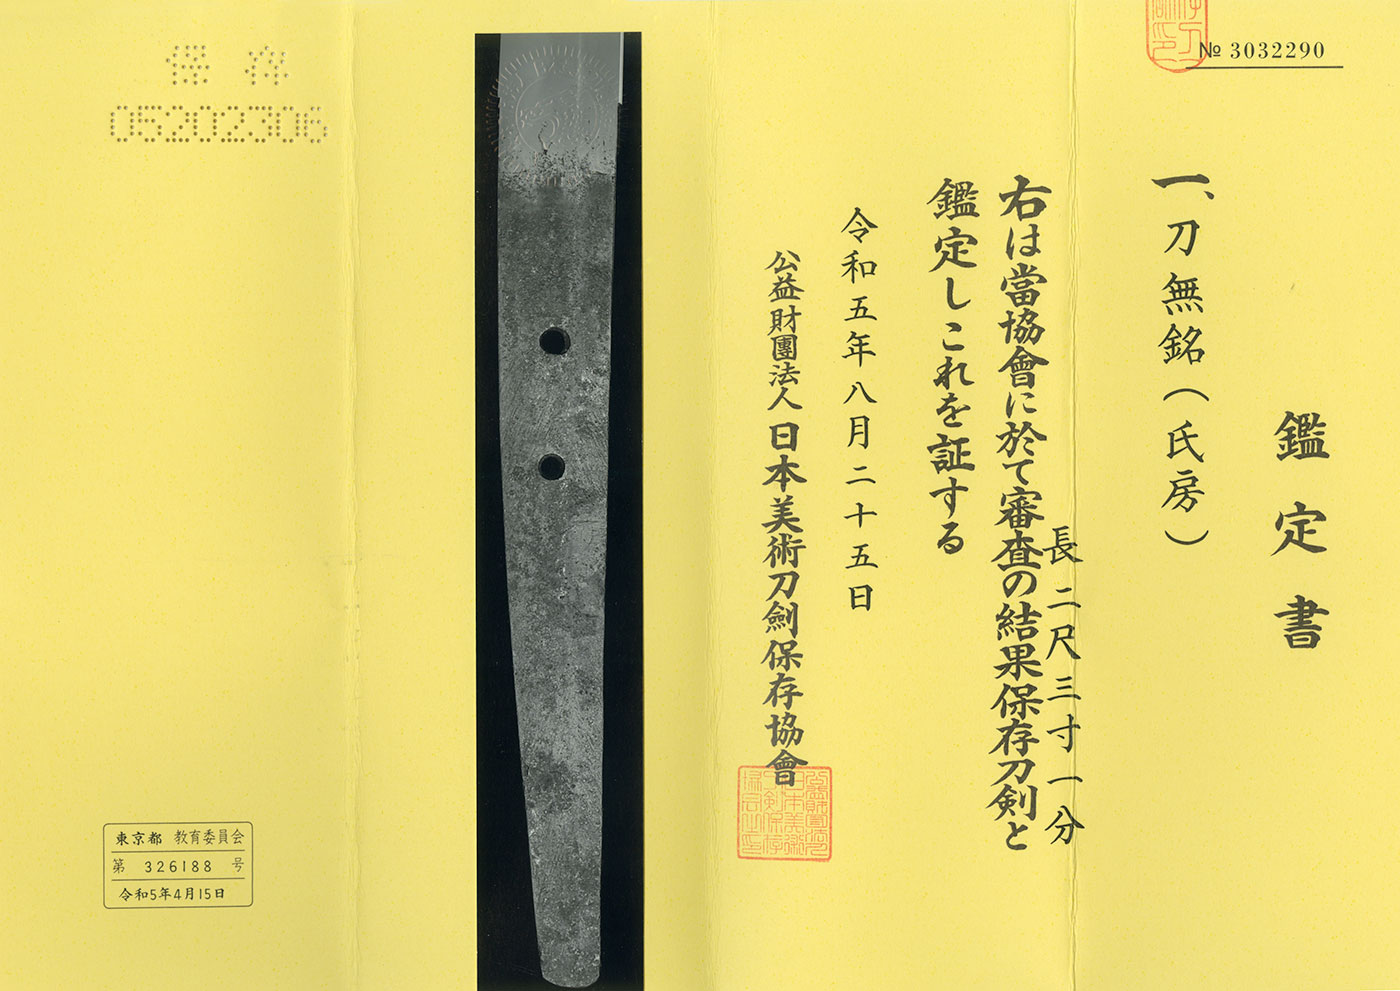 № 3032290
鑑定書
一、刀 無銘(氏房)
長二尺三寸一分
右は當協會に於て審査の結果保存刀剣と
鑑定しこれを証する
令和五年八月二十五日
公益財團法人 日本美術刀劍保存協會
保存
05202306
東京都 教育委員会
第 326188 号
令和5年4月15日